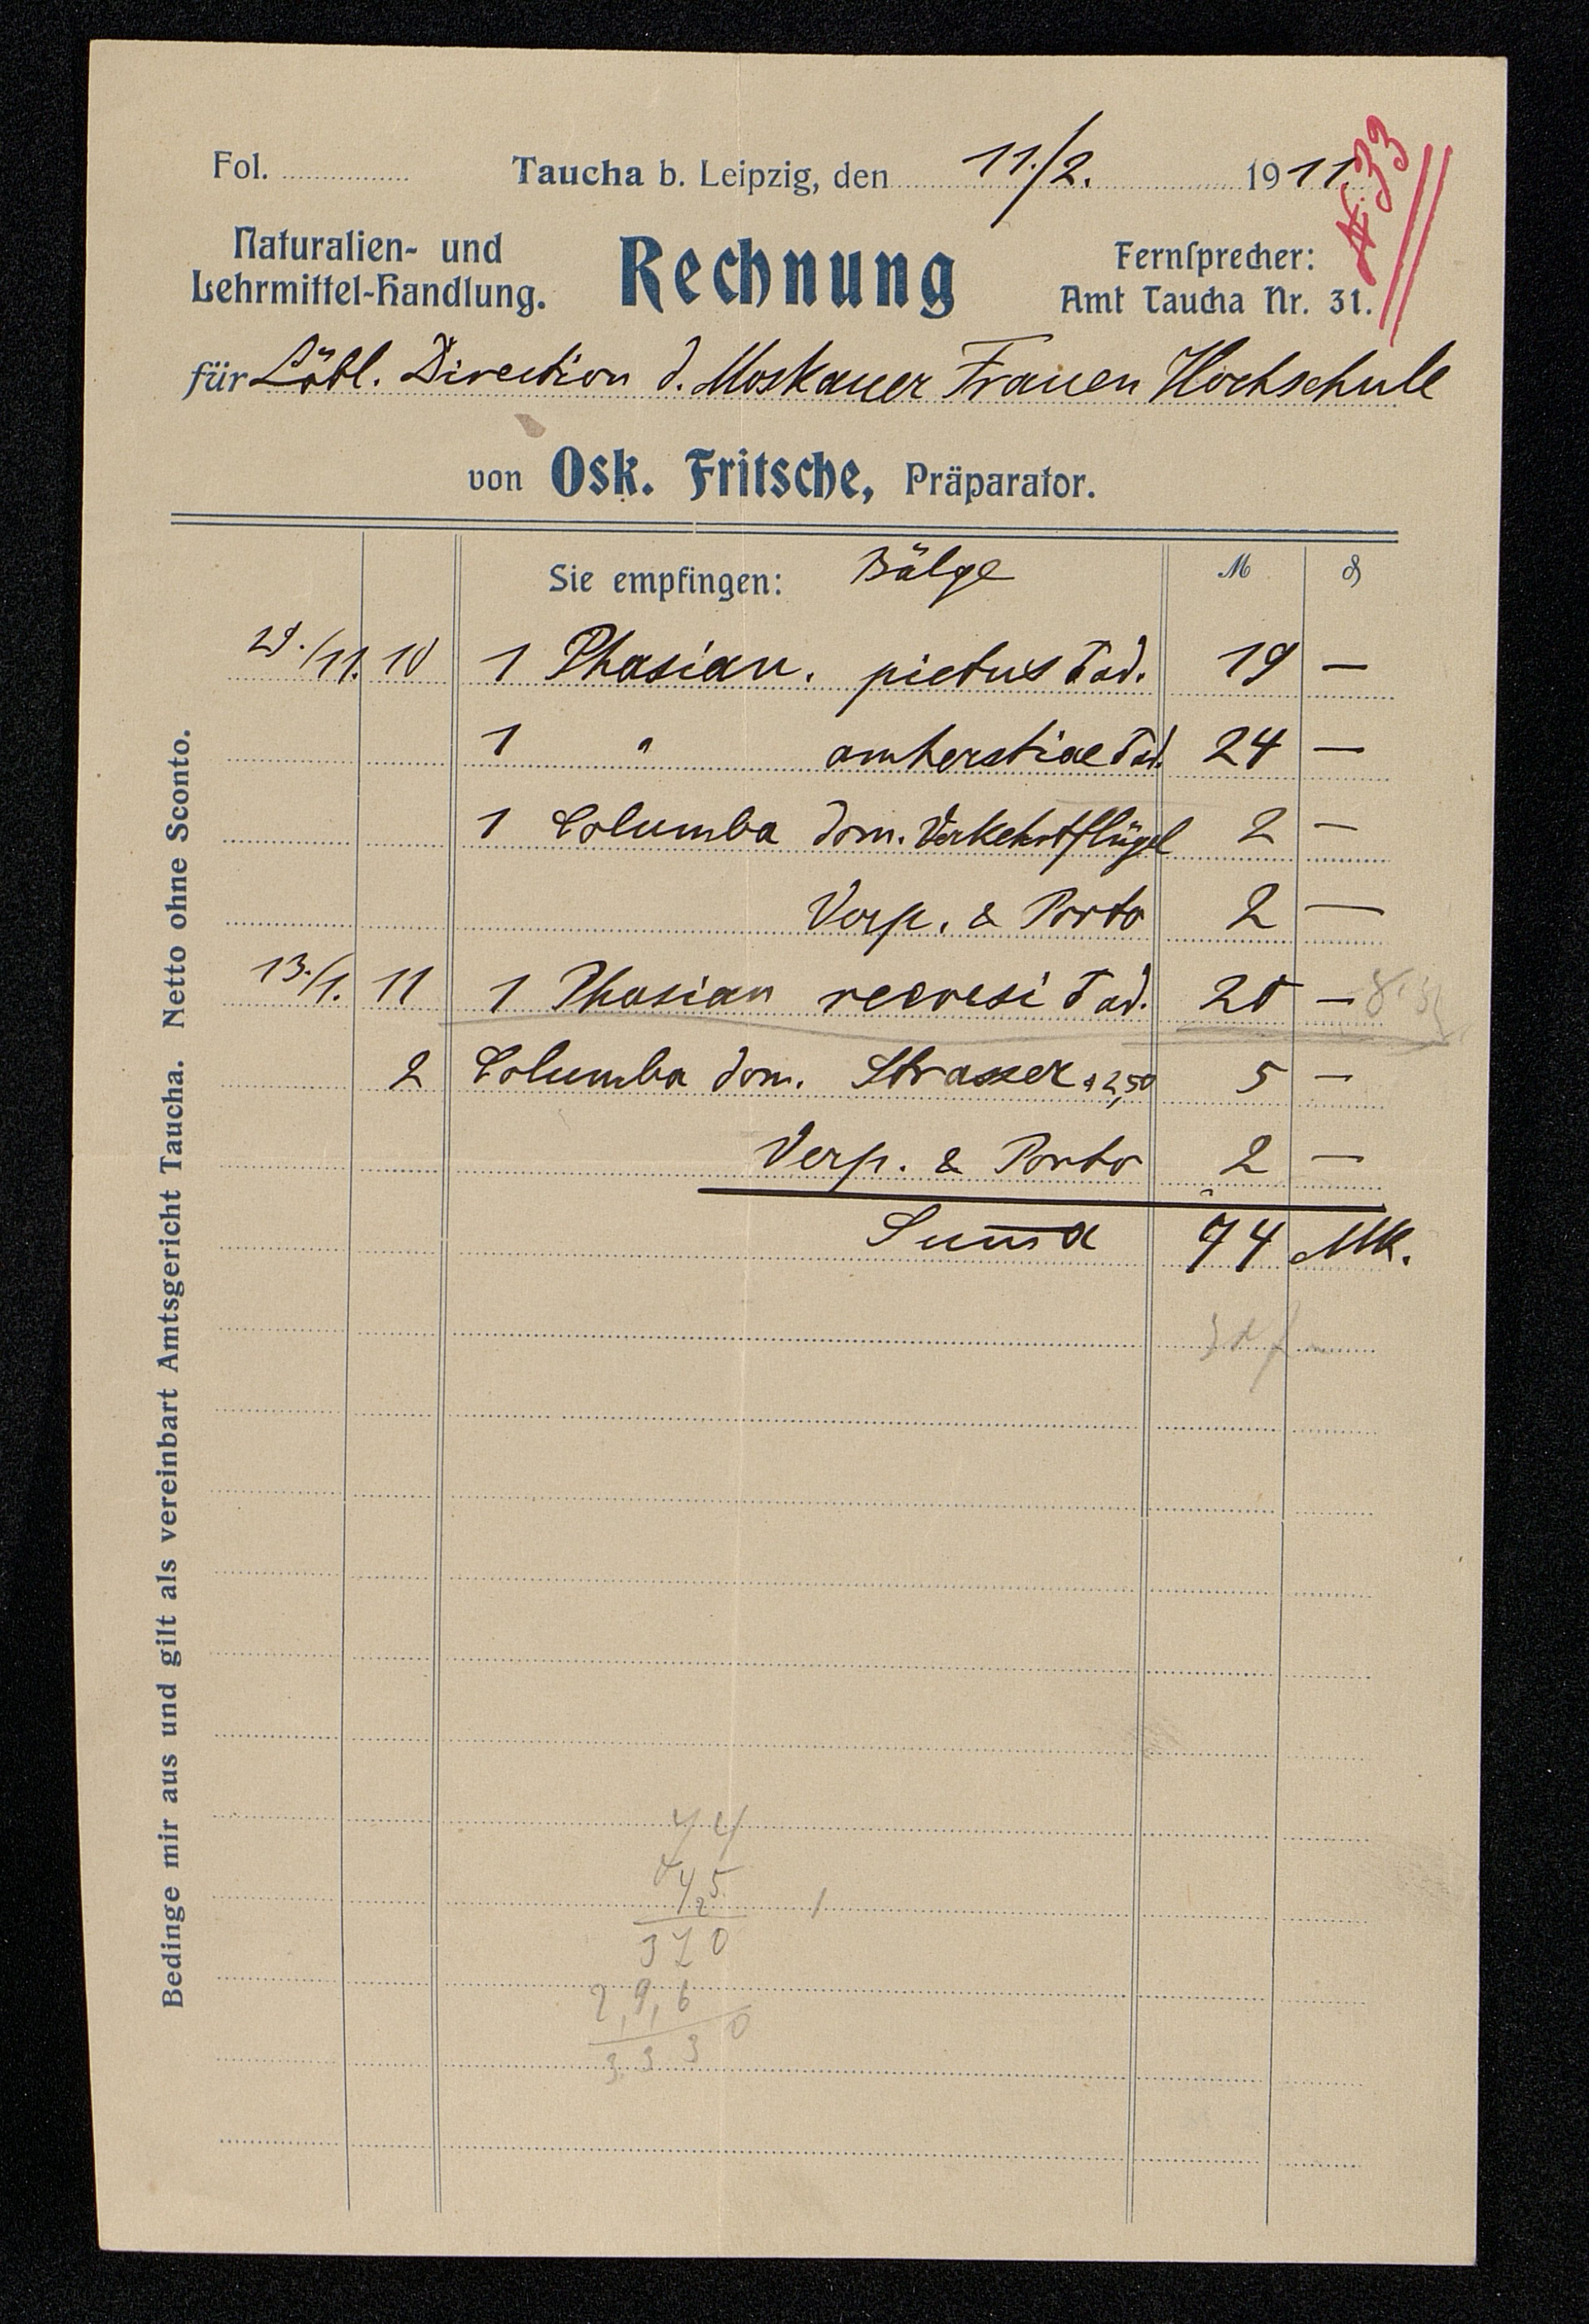 Fol.
Taucha b. Leipzig, den 11./2. 1911.
№ 33
Naturalien- und
Lehrmittel-Handlung.
Rechnung
Fernsprecher:
Amt Taucha Nr. 31.
für Löbl. Direction d. Moskauer Frauen Hochschule
von Osk. Fritsche, Präparator.
Sie empfingen: Bälge M ₰
29./11. 10 1 Phasian. pictus ad. 19 —
1 " amherstiae ad. 24 —
1 Columba dom. Verkehrtflügel 2 —
Verp. & Porto 2 —
13./1. 11 1 Phasian reevesi ad. 20 —
2 Columba dom. Strasser à 2,50 5 —
Verp. & Porto 2 —
Suma 74 Mk.
Bedinge mir aus und gilt als vereinbart Amtsgericht Taucha. Netto ohne Sconto.
74
45
370
2,9,6
3 3 3 0